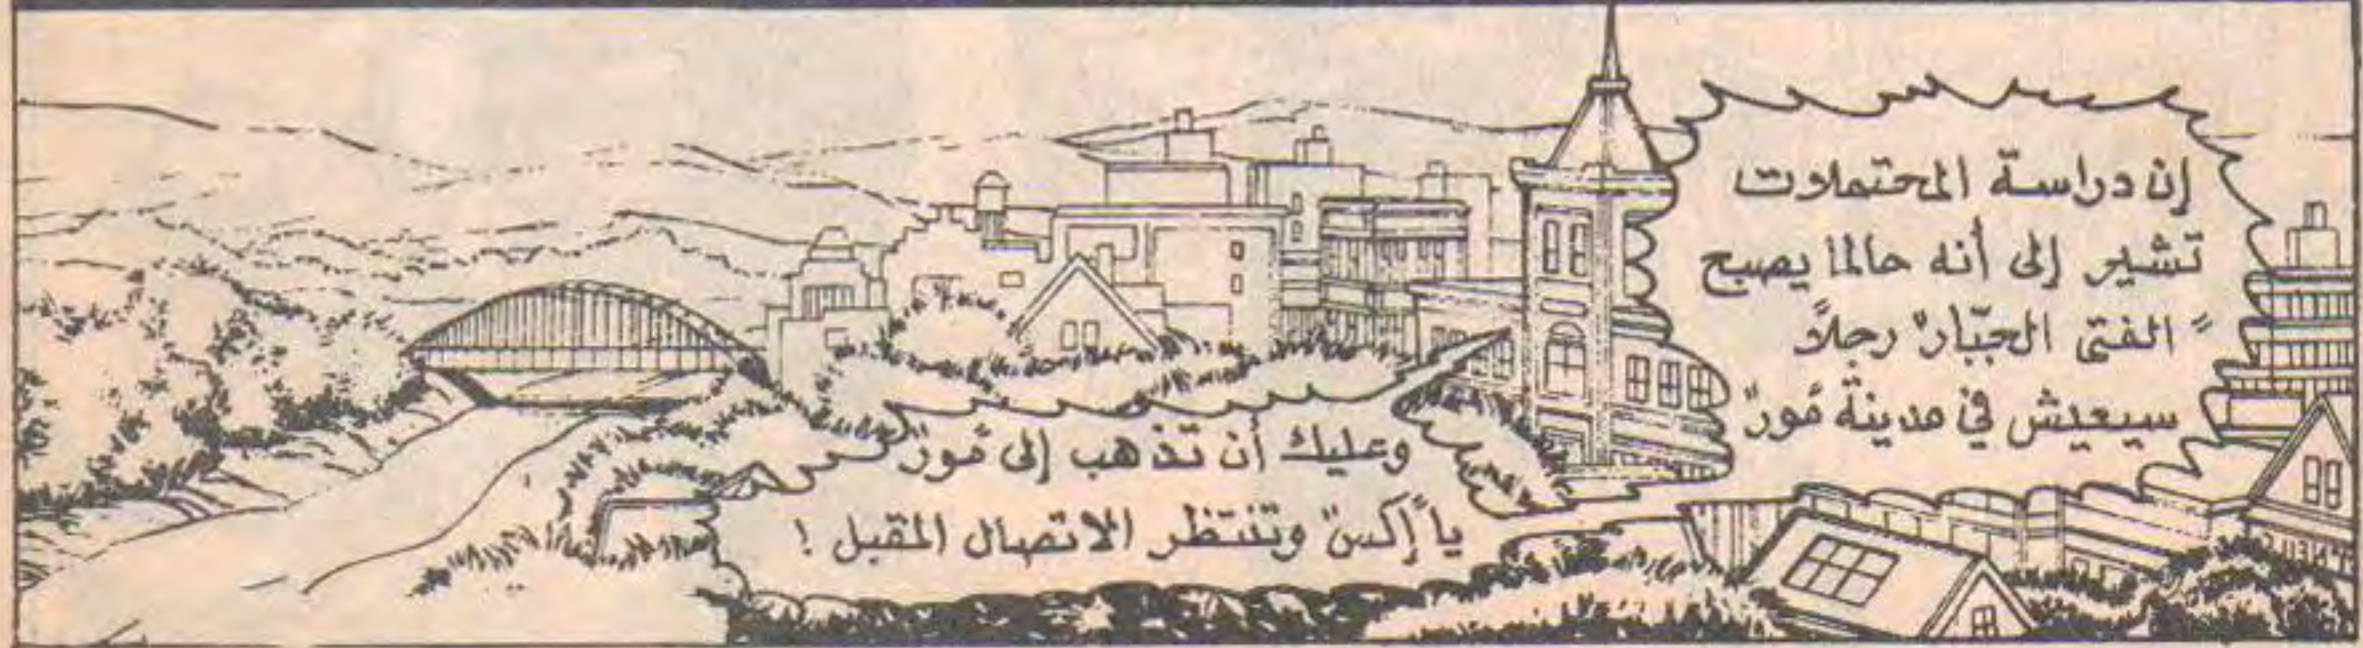 إن دراسة المحتملات
تشير إلى أنه حالما يصبح
"الفتى الجبّار" رجلاً
سيعيش في مدينة "فور"
وعليك أن تذهب إلى "فور"
يا "إكس" وتنتظر الاتصال المقبل !